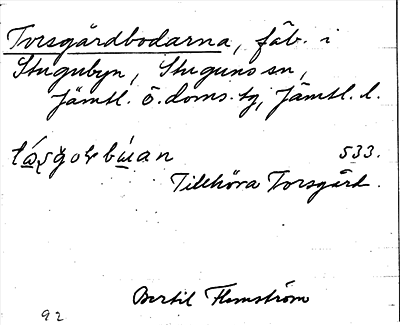 Torsgårdbodarna, fäb. i
Stugubyn, Stuguns sn,
Jämtl. ö. doms. tg, Jämtl. l.
533.
Tillhöra Torsgård.
Bertil Flemström
92